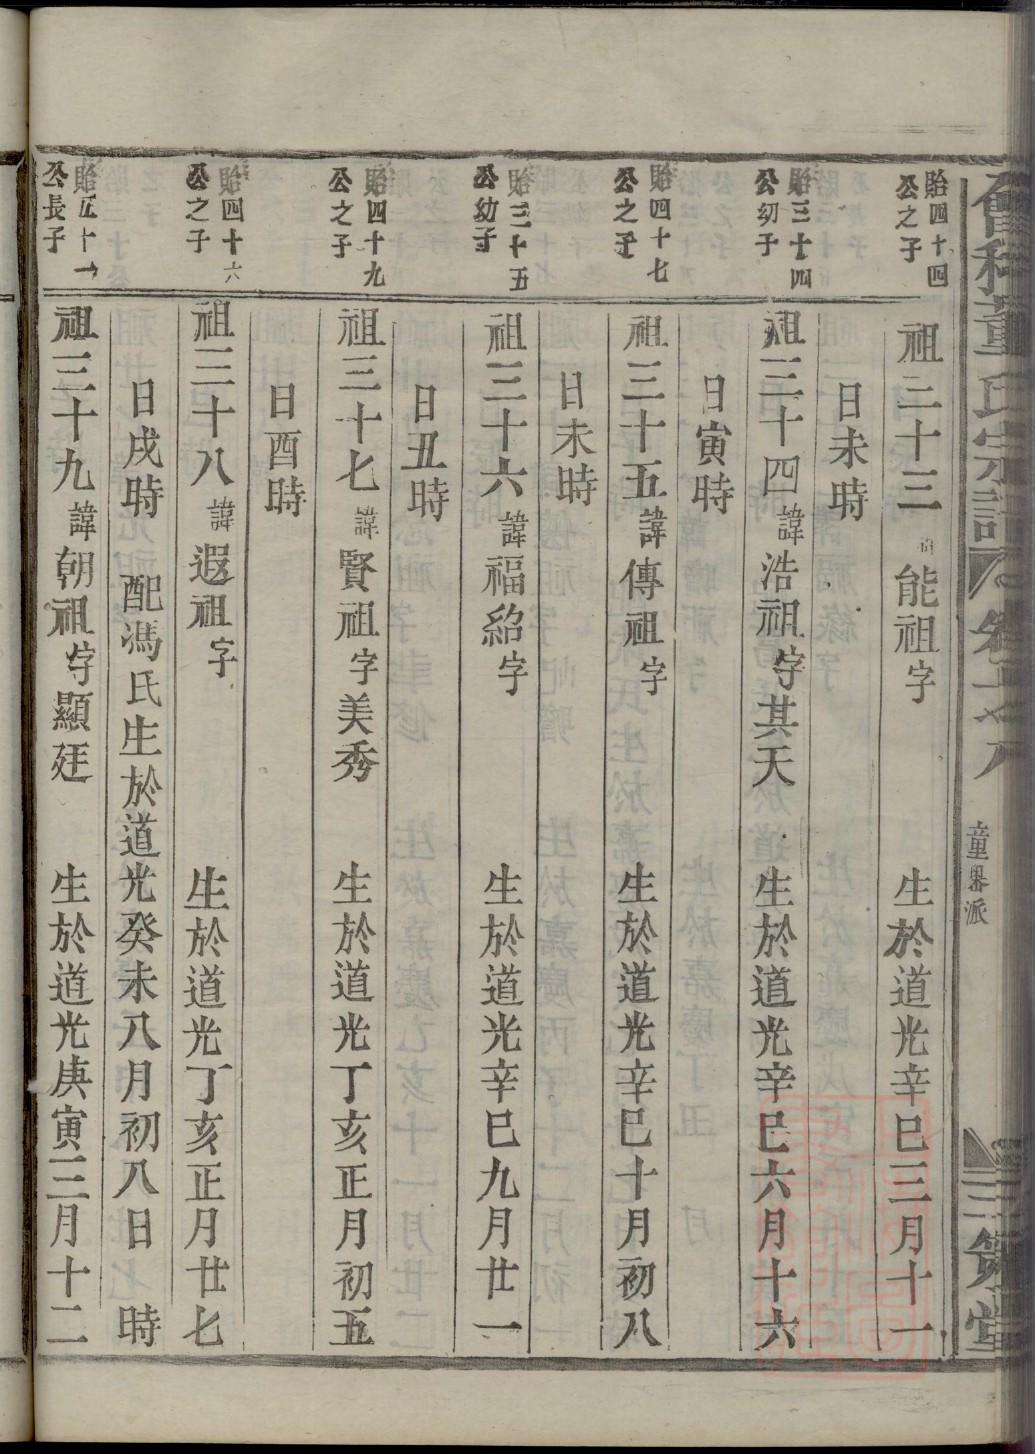 童氏宗譜
童畧派
貽四十四
公之子
祖三十三 能祖字 生於道光辛巳三月十一
日未時
貽三十四
公幼子
祖三十四諱浩祖字其天 生於道光辛巳六月十六
日寅時
貽四十七
公之子
祖三十五諱傳祖字 生於道光辛巳十月初八
日未時
貽三十五
公幼子
祖三十六諱福紹字 生於道光辛巳九月廿一
日丑時
貽四十九
公之子
祖三十七諱賢祖字美秀 生於道光丁亥正月初五
日酉時
貽四十六
公之子
祖三十八諱遐祖字 生於道光丁亥正月廿七
日戌時 配馮氏生於道光癸未八月初八日 時
貽五十一
公長子
祖三十九諱朝祖字顯廷 生於道光庚寅三月十二